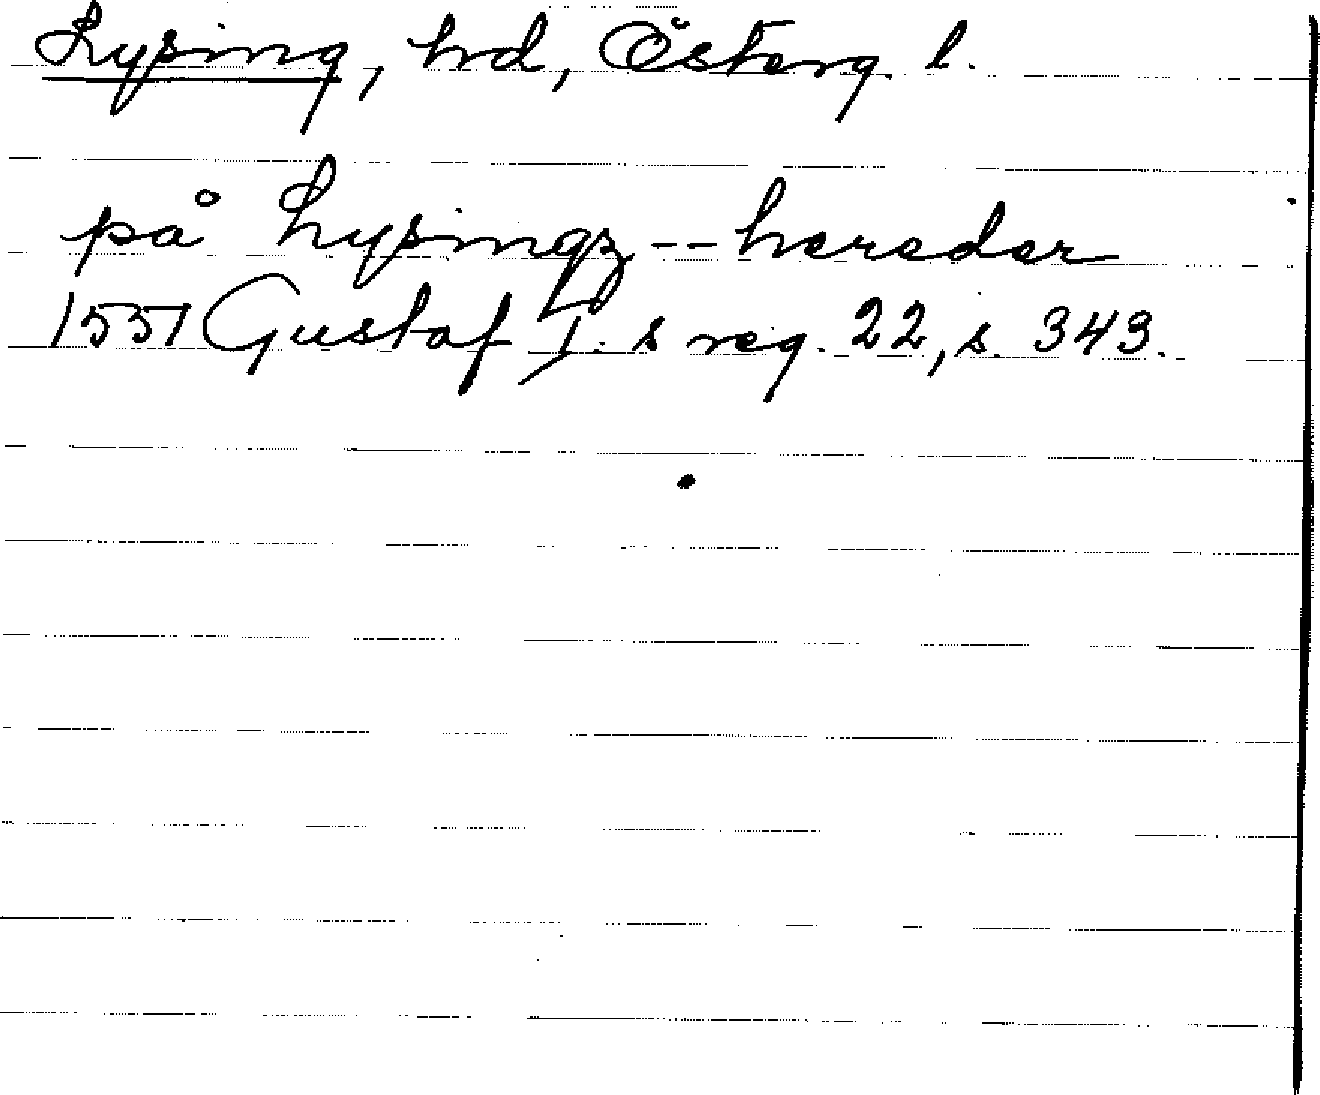 Lysing, hrd, Österg. l.
på Lysingz -- hereder
1551 Gustaf I. s reg. 22, s. 343.